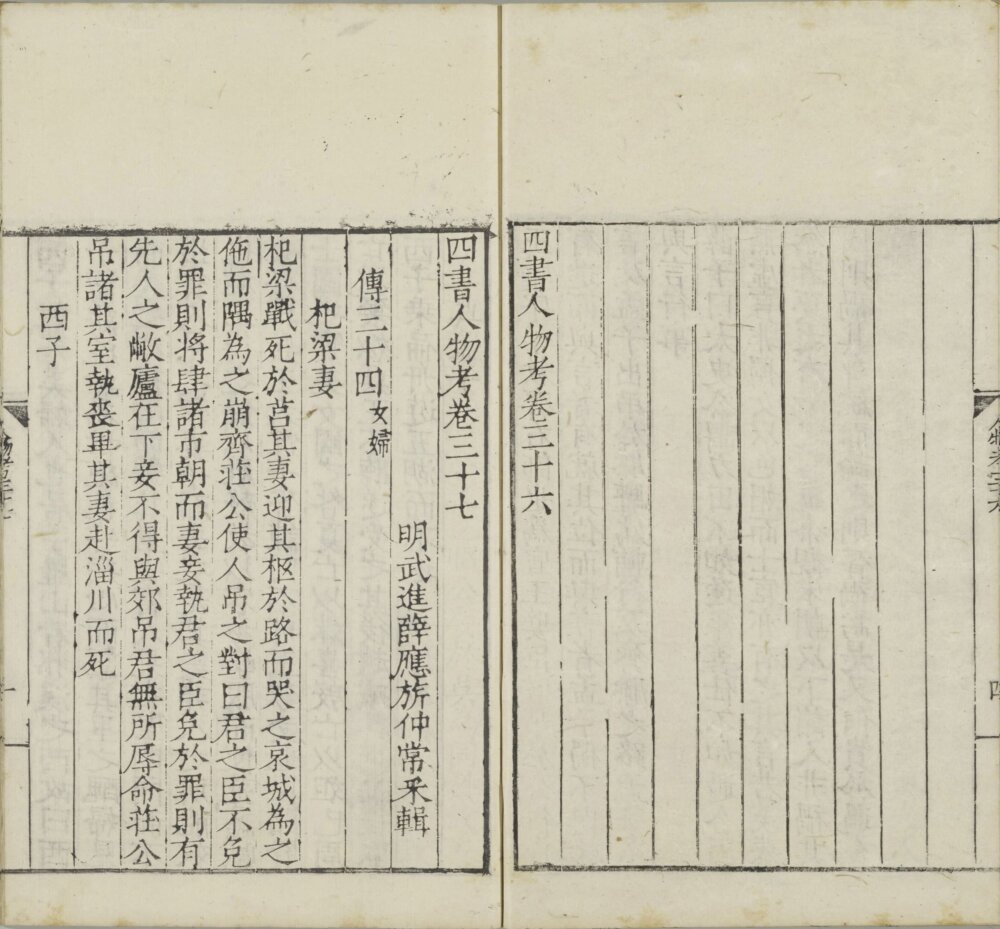 四書人物考卷三十六
四書人物考卷三十七
明武進薛應旂仲常采輯
傳三十四 女婦
杞梁妻
杞梁戰死於莒其妻迎其柩於路而哭之哀城為之
佹而隅為之崩齊莊公使人吊之對曰君之臣不免
於罪則將肆諸市朝而妻妾執君之臣免於罪則有
先人之敝廬在下妾不得與郊吊君無所辱命莊公
吊諸其室執喪畢其妻赴淄川而死
西子